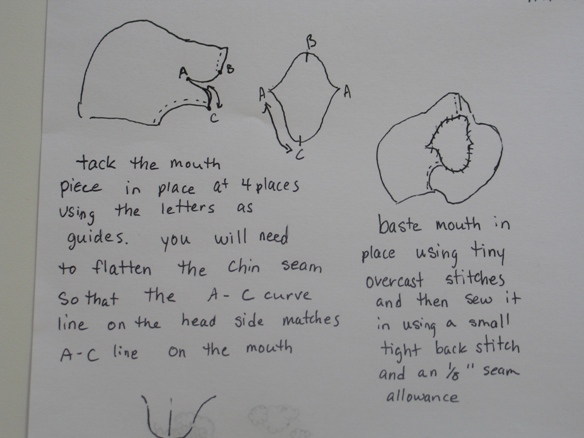 A
B
C
B
A
A
C
tack the mouth
piece in place at 4 places
using the letters as
guides. you will need
to flatten the chin seam
so that the A-C curve
line on the head side matches
A-C line on the mouth
baste mouth in
place using tiny
overcast stitches
and then sew it
in using a small
tight back stitch
and an 1/8" seam
allowance